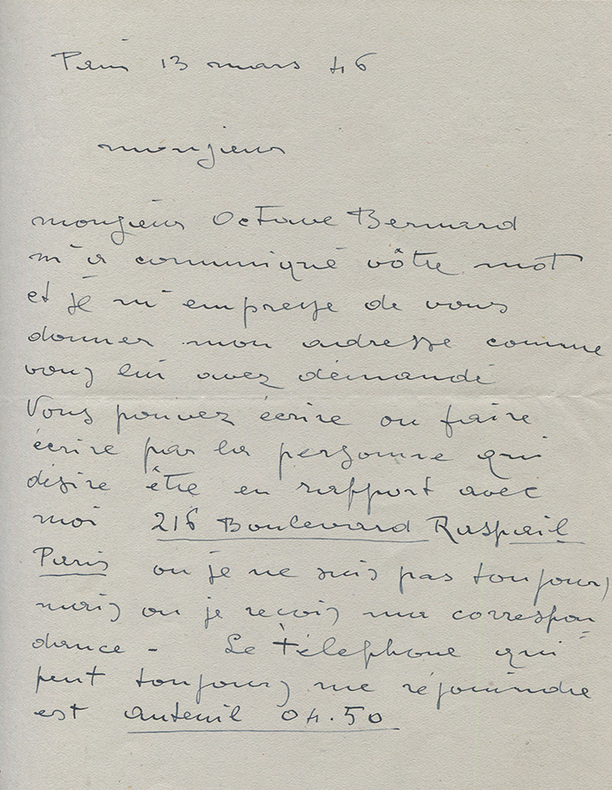 Paris 13 mars 46
monsieur
monsieur Octave Bernard
m'a communiqué vôtre mot
et je m'empresse de vous
donner mon adresse comme
vous lui avez démandé
Vous pouvez écrire ou faire
écrire par la personne qui
désire être en rapport avec
moi 216 Boulevard Raspail
Paris ou je ne suis pas toujours
mais ou je reçois ma correspon
dance - Le Télephone qui
peut toujours me réjoindre
est auteuil 04.50